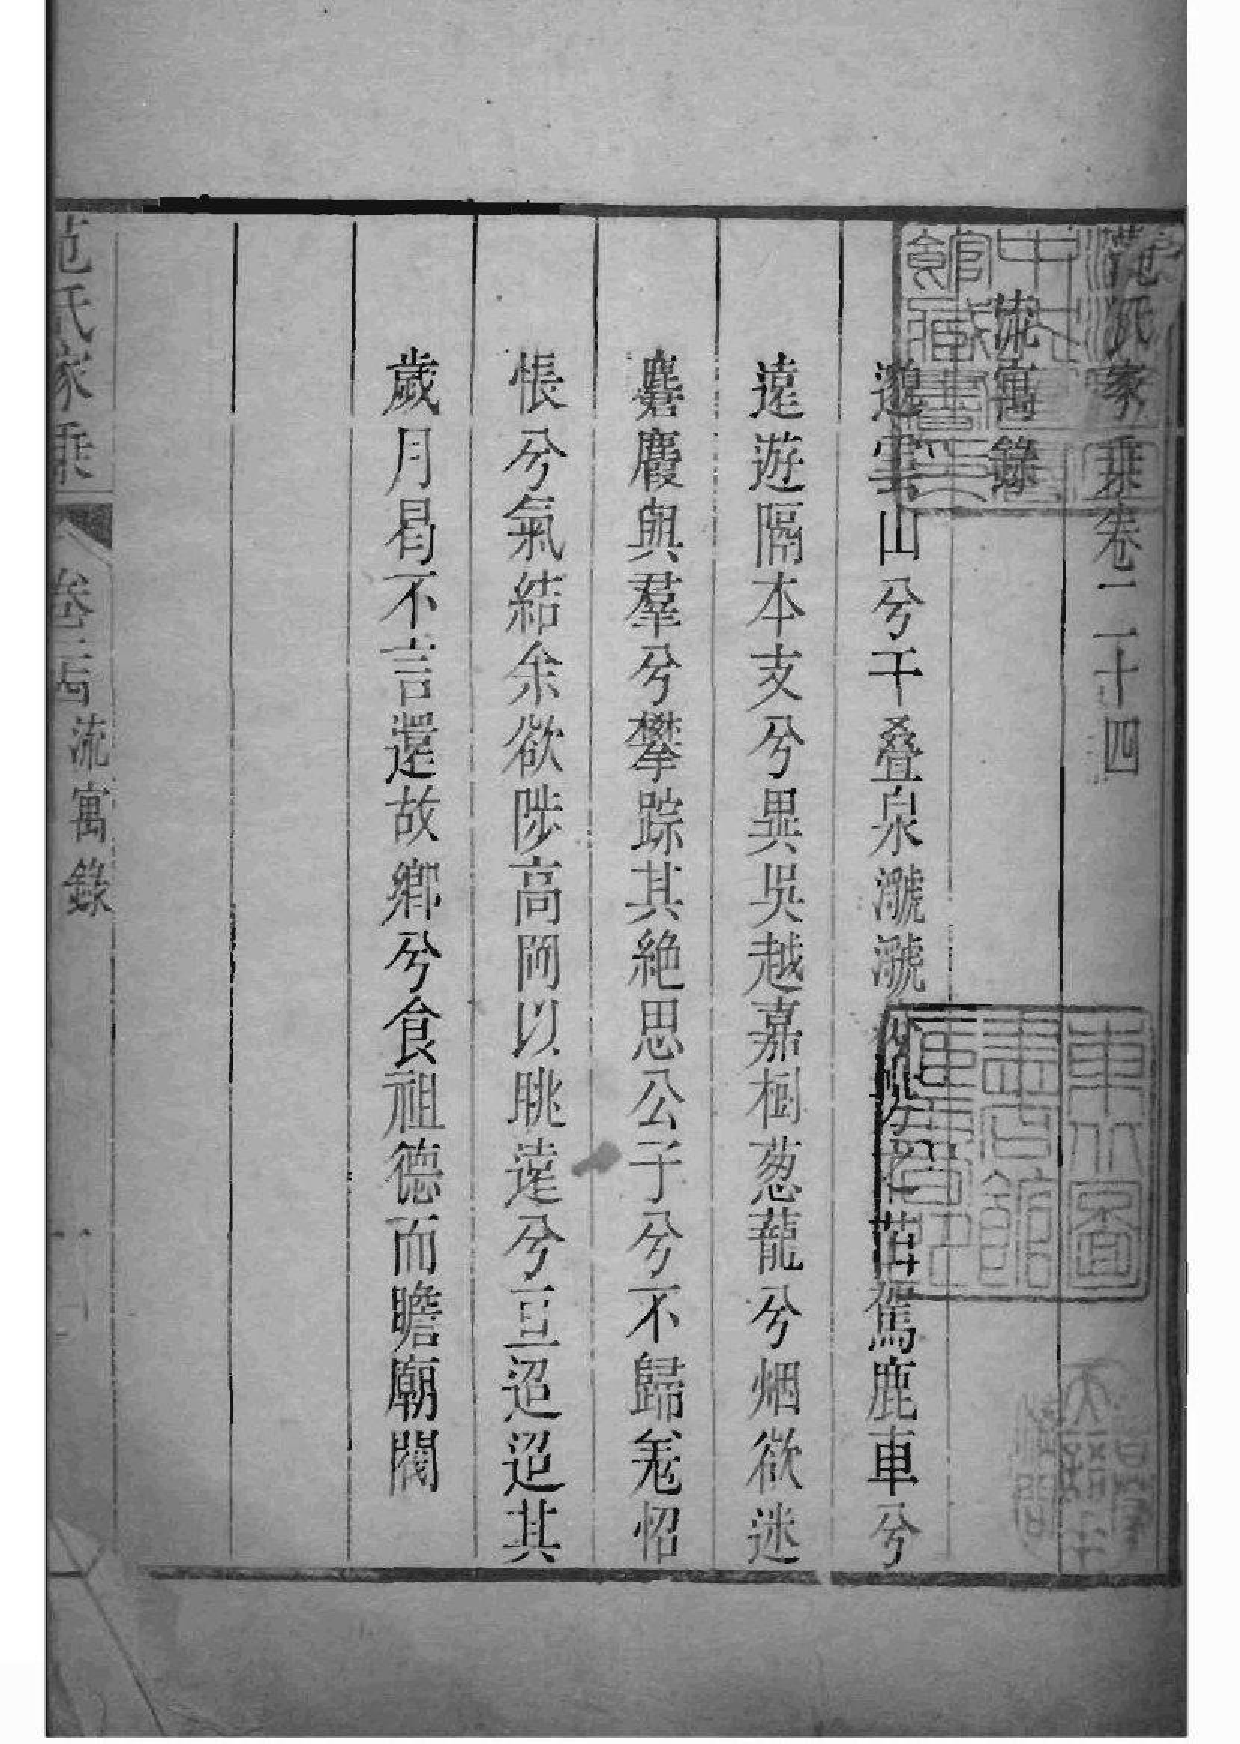 范氏家乘卷二十四
流寓錄
邈雲山兮千叠泉㶁㶁苗駕鹿車兮
遠遊隔本支兮異吳越嘉樹葱蘢兮烟欲迷
麏麚與羣兮攀踪其絶思公子兮不歸羗怊
悵兮氣結余欲陟高岡以眺遠兮亘迢迢其
歲月曷不言還故鄉兮食祖德而瞻廟閥
范氏家乘
卷二十四
流寓錄